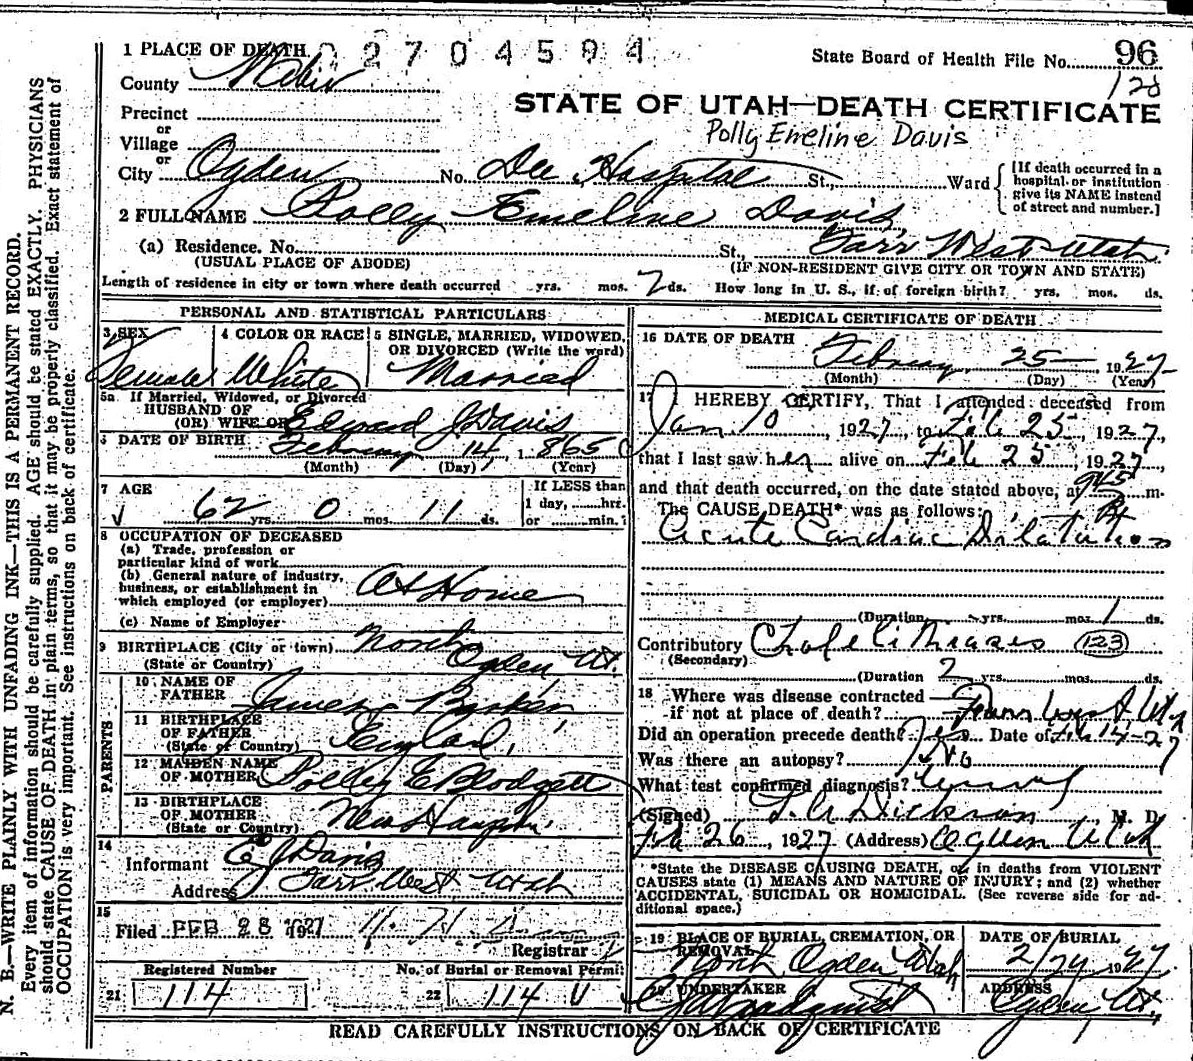 1 PLACE OF DEATH 02704594
State Board of Health File No. 96
County Weber
128
STATE OF UTAH—DEATH CERTIFICATE
Precinct
or
Polly Emeline Davis
Village
or
City Ogden No. Dee Hospital St., Ward
[If death occurred in a hospital or institution give its NAME instead of street and number.]
2 FULL NAME Polly Emeline Davis
(a) Residence. No. St., Farr West Utah
(USUAL PLACE OF ABODE) (IF NON-RESIDENT GIVE CITY OR TOWN AND STATE)
Length of residence in city or town where death occurred yrs. mos. 7 ds. How long in U. S., if of foreign birth? yrs. mos. ds.
PERSONAL AND STATISTICAL PARTICULARS
3 SEX 4 COLOR OR RACE 5 SINGLE, MARRIED, WIDOWED, OR DIVORCED (Write the word)
Female White Married
5a If Married, Widowed, or Divorced
HUSBAND OF
(OR) WIFE OF Edward J Davis
6 DATE OF BIRTH February 14, 1865
(Month) (Day) (Year)
7 AGE If LESS than
62 yrs. 0 mos. 11 ds. 1 day, hrs.
or min.?
8 OCCUPATION OF DECEASED
(a) Trade, profession or
particular kind of work
(b) General nature of industry,
business, or establishment in
which employed (or employer) At Home
(c) Name of Employer
9 BIRTHPLACE (City or town) North
(State or Country) Ogden Ut.
PARENTS
10 NAME OF FATHER James Barker
11 BIRTHPLACE OF FATHER
(State or Country) England
12 MAIDEN NAME OF MOTHER Polly E Blodgett
13 BIRTHPLACE OF MOTHER
(State or Country) New Hamp
14
Informant E J Davis
Address Farr West Utah
15
Filed FEB 28 1927
Registrar
Registered Number No. of Burial or Removal Permit
21 114 22 114 U
MEDICAL CERTIFICATE OF DEATH
16 DATE OF DEATH
February 25 1927
(Month) (Day) (Year)
17 I HEREBY CERTIFY, That I attended deceased from
Jan. 10, 1927, to Feb 25, 1927,
that I last saw her alive on Feb 25, 1927,
and that death occurred, on the date stated above, at 945 P m.
The CAUSE DEATH* was as follows:
Acute Cardiac Dilatation
(Duration yrs. mos. 1 ds.
Contributory Cholelithiasis (123)
(Secondary)
(Duration 2 yrs. mos. ds.
18 Where was disease contracted
if not at place of death? Farr West Utah
Did an operation precede death? Yes Date of Feb 14-27
Was there an autopsy? No
What test confirmed diagnosis?
(Signed) Dickson, M. D.
Feb 26, 1927 (Address) Ogden Utah
*State the DISEASE CAUSING DEATH, or in deaths from VIOLENT
CAUSES state (1) MEANS AND NATURE OF INJURY; and (2) whether
ACCIDENTAL, SUICIDAL OR HOMICIDAL. (See reverse side for additional space.)
19 PLACE OF BURIAL, CREMATION, OR REMOVAL DATE OF BURIAL
North Ogden Utah 2/ 1927
20 UNDERTAKER ADDRESS
Ogden Ut.
READ CAREFULLY INSTRUCTIONS ON BACK OF CERTIFICATE
N. B.—WRITE PLAINLY WITH UNFADING INK—THIS IS A PERMANENT RECORD.
Every item of information should be carefully supplied. AGE should be stated EXACTLY. PHYSICIANS
should state CAUSE OF DEATH in plain terms, so that it may be properly classified. Exact statement of
OCCUPATION is very important. See instructions on back of certificate.